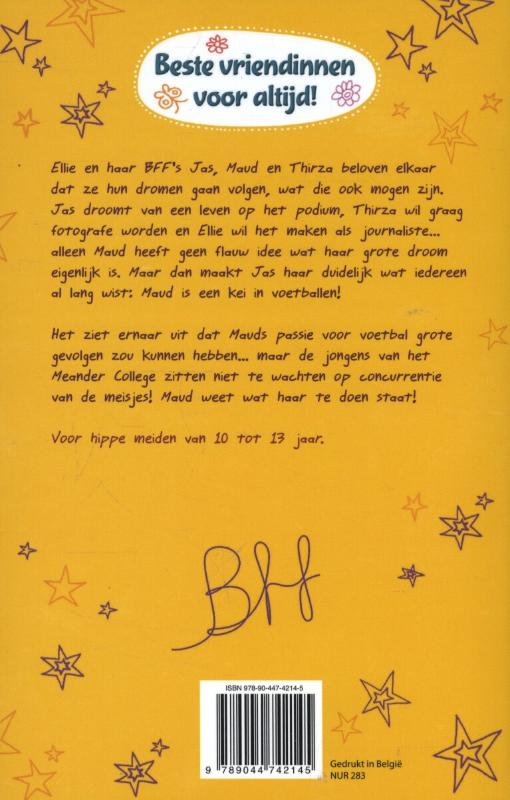 Beste vriendinnen
voor altijd!
Ellie en haar BFF's Jas, Maud en Thirza beloven elkaar
dat ze hun dromen gaan volgen, wat die ook mogen zijn.
Jas droomt van een leven op het podium, Thirza wil graag
fotografe worden en Ellie wil het maken als journaliste...
alleen Maud heeft geen flauw idee wat haar grote droom
eigenlijk is. Maar dan maakt Jas haar duidelijk wat iedereen
al lang wist: Maud is een kei in voetballen!
Het ziet ernaar uit dat Mauds passie voor voetbal grote
gevolgen zou kunnen hebben... maar de jongens van het
Meander College zitten niet te wachten op concurrentie
van de meisjes! Maud weet wat haar te doen staat!
Voor hippe meiden van 10 tot 13 jaar.
Bff
ISBN 978-90-447-4214-5
9 789044 742145
Gedrukt in België
NUR 283